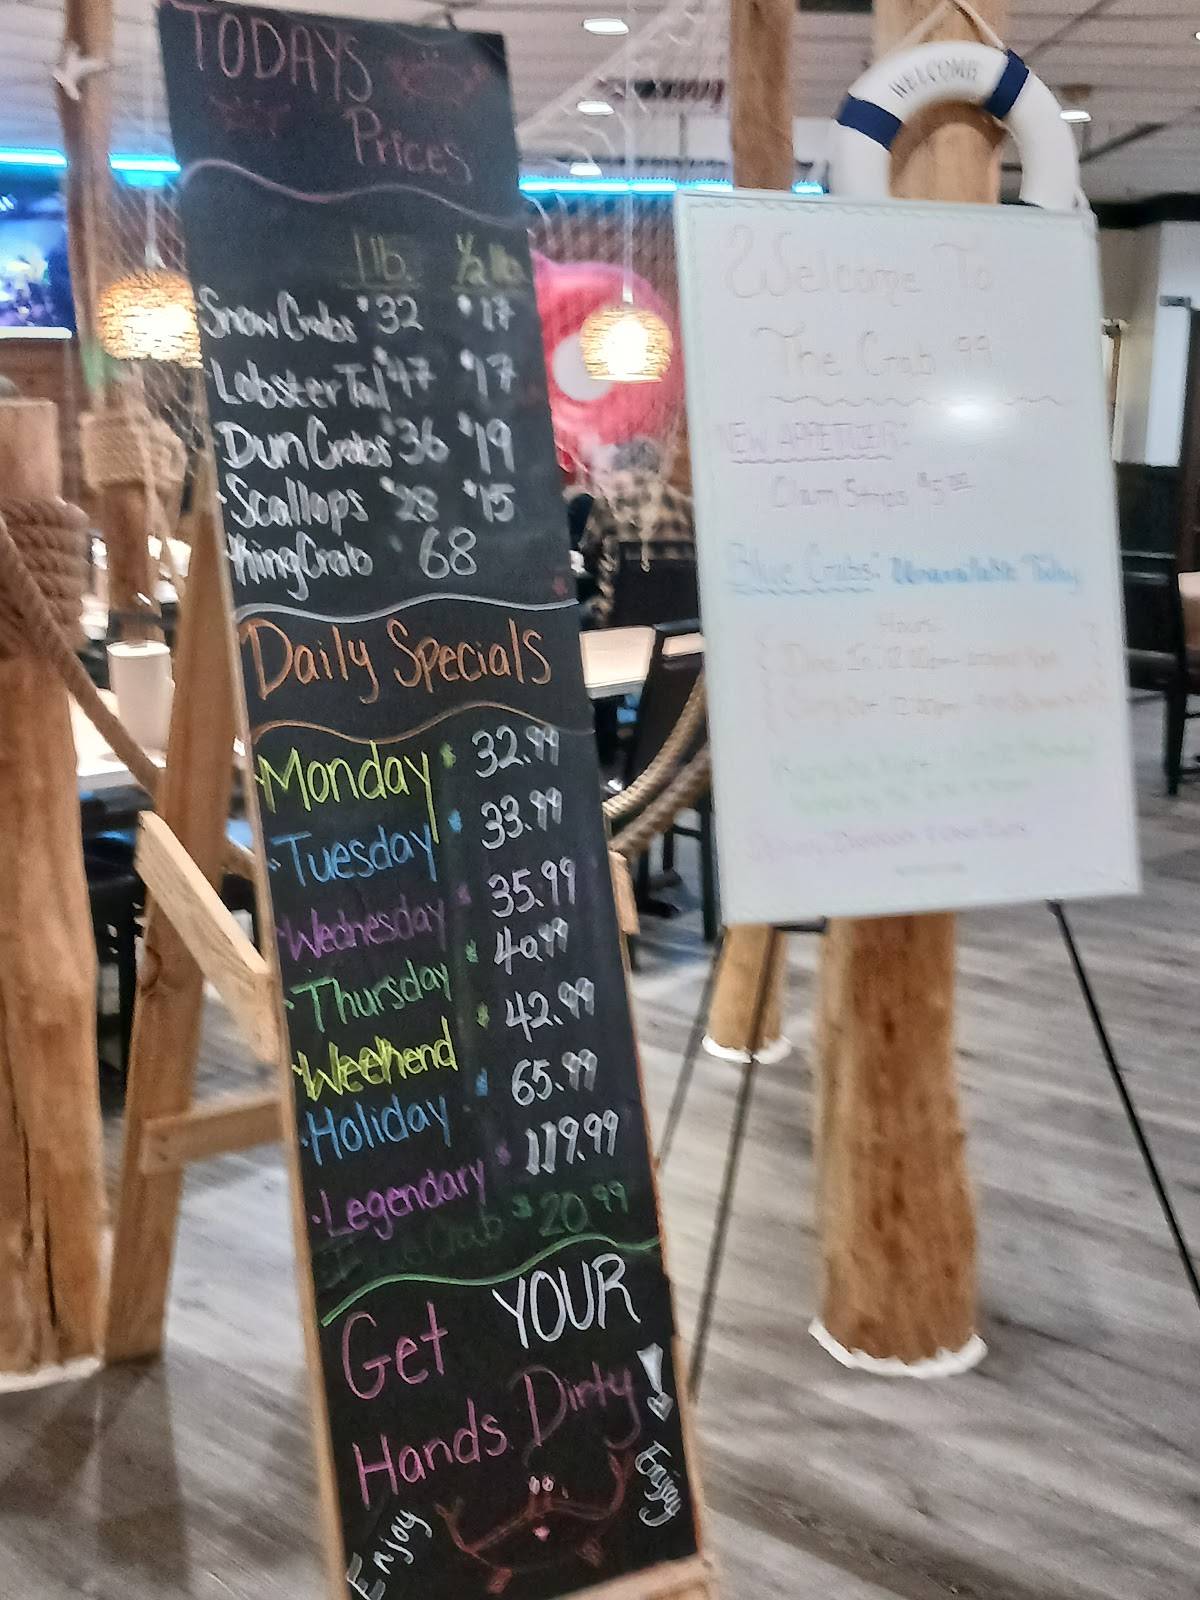 TODAYS
Prices
1 lb. 1/2 lb.
Snow Crabs $32 $17
Lobster Tail $47 $17
Dun Crabs $36 $19
Scallops $28 $15
King Crab 68
Daily Specials
Monday $ 32.99
Tuesday $ 33.99
Wednesday $ 35.99
Thursday $ 40.99
Weekend $ 42.99
Holiday $ 65.99
Legendary $ 119.99
Blue Crab $20.99
Get YOUR
Hands Dirty!
Enjoy
Enjoy
WELCOME
Welcome To
The Crab 99
NEW APPETIZER:
Clam Strips $5.00
Blue Crabs: Unavailable Today
Hours: